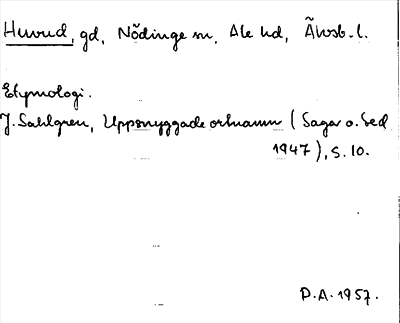 Huvud, gd, Nödinge sn, Ale hd, Älvsb. l.
Etymologi.
J. Sahlgren, Uppsnyggade ortnamn (Saga o. Sed
1947), s. 10.
P.A. 1957.